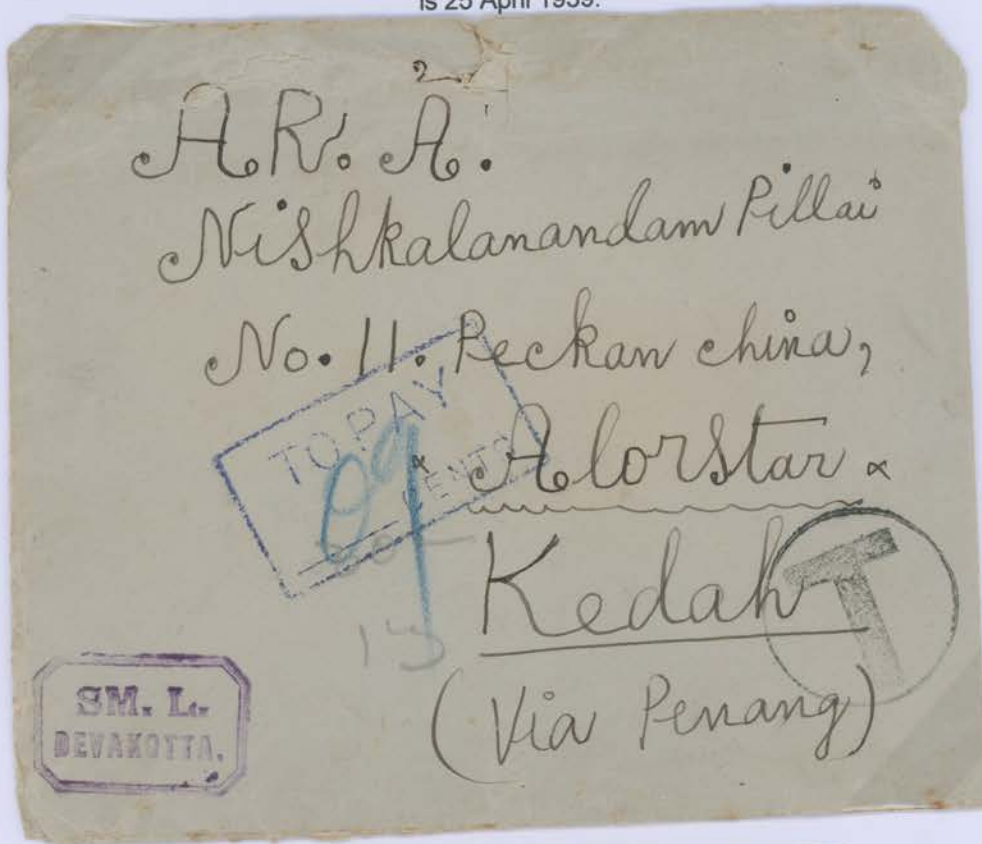 is 25 April 1939.
AR. A.
Nishkalanandam Pillai
No. 11. Peckan china,
Alorstar
Kedah
(Via Penang)
TO PAY
09
CENTS
T
13
SM. L.
DEVAKOTTA.